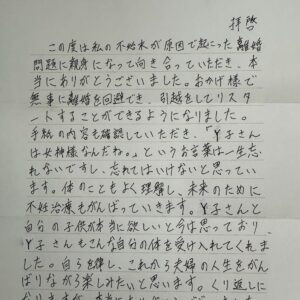 拝啓
この度は私の不始末が原因で起こった離婚
問題に親身になって向き合っていただき、本
当にありがとうございました。おかげ様で
無事に離婚を回避でき、引越をしてリスタ
ートすることができるようになりました。
手紙の内容も確認していただき、「Y子さん
は女神様なんだね。」というお言葉は一生忘
れないですし、忘れてはいけないと思ってい
ます。体のこともよく理解し、未来のために
不妊治療もがんばっていきます。Y子さんと
自分の子供が本当に欲しいと今は思っており、
Y子さんもこんな自分の体を受け入れてくれま
した。自らを律し、これから夫婦の人生をがん
ばりながら楽しみたいと思います。くり返しに